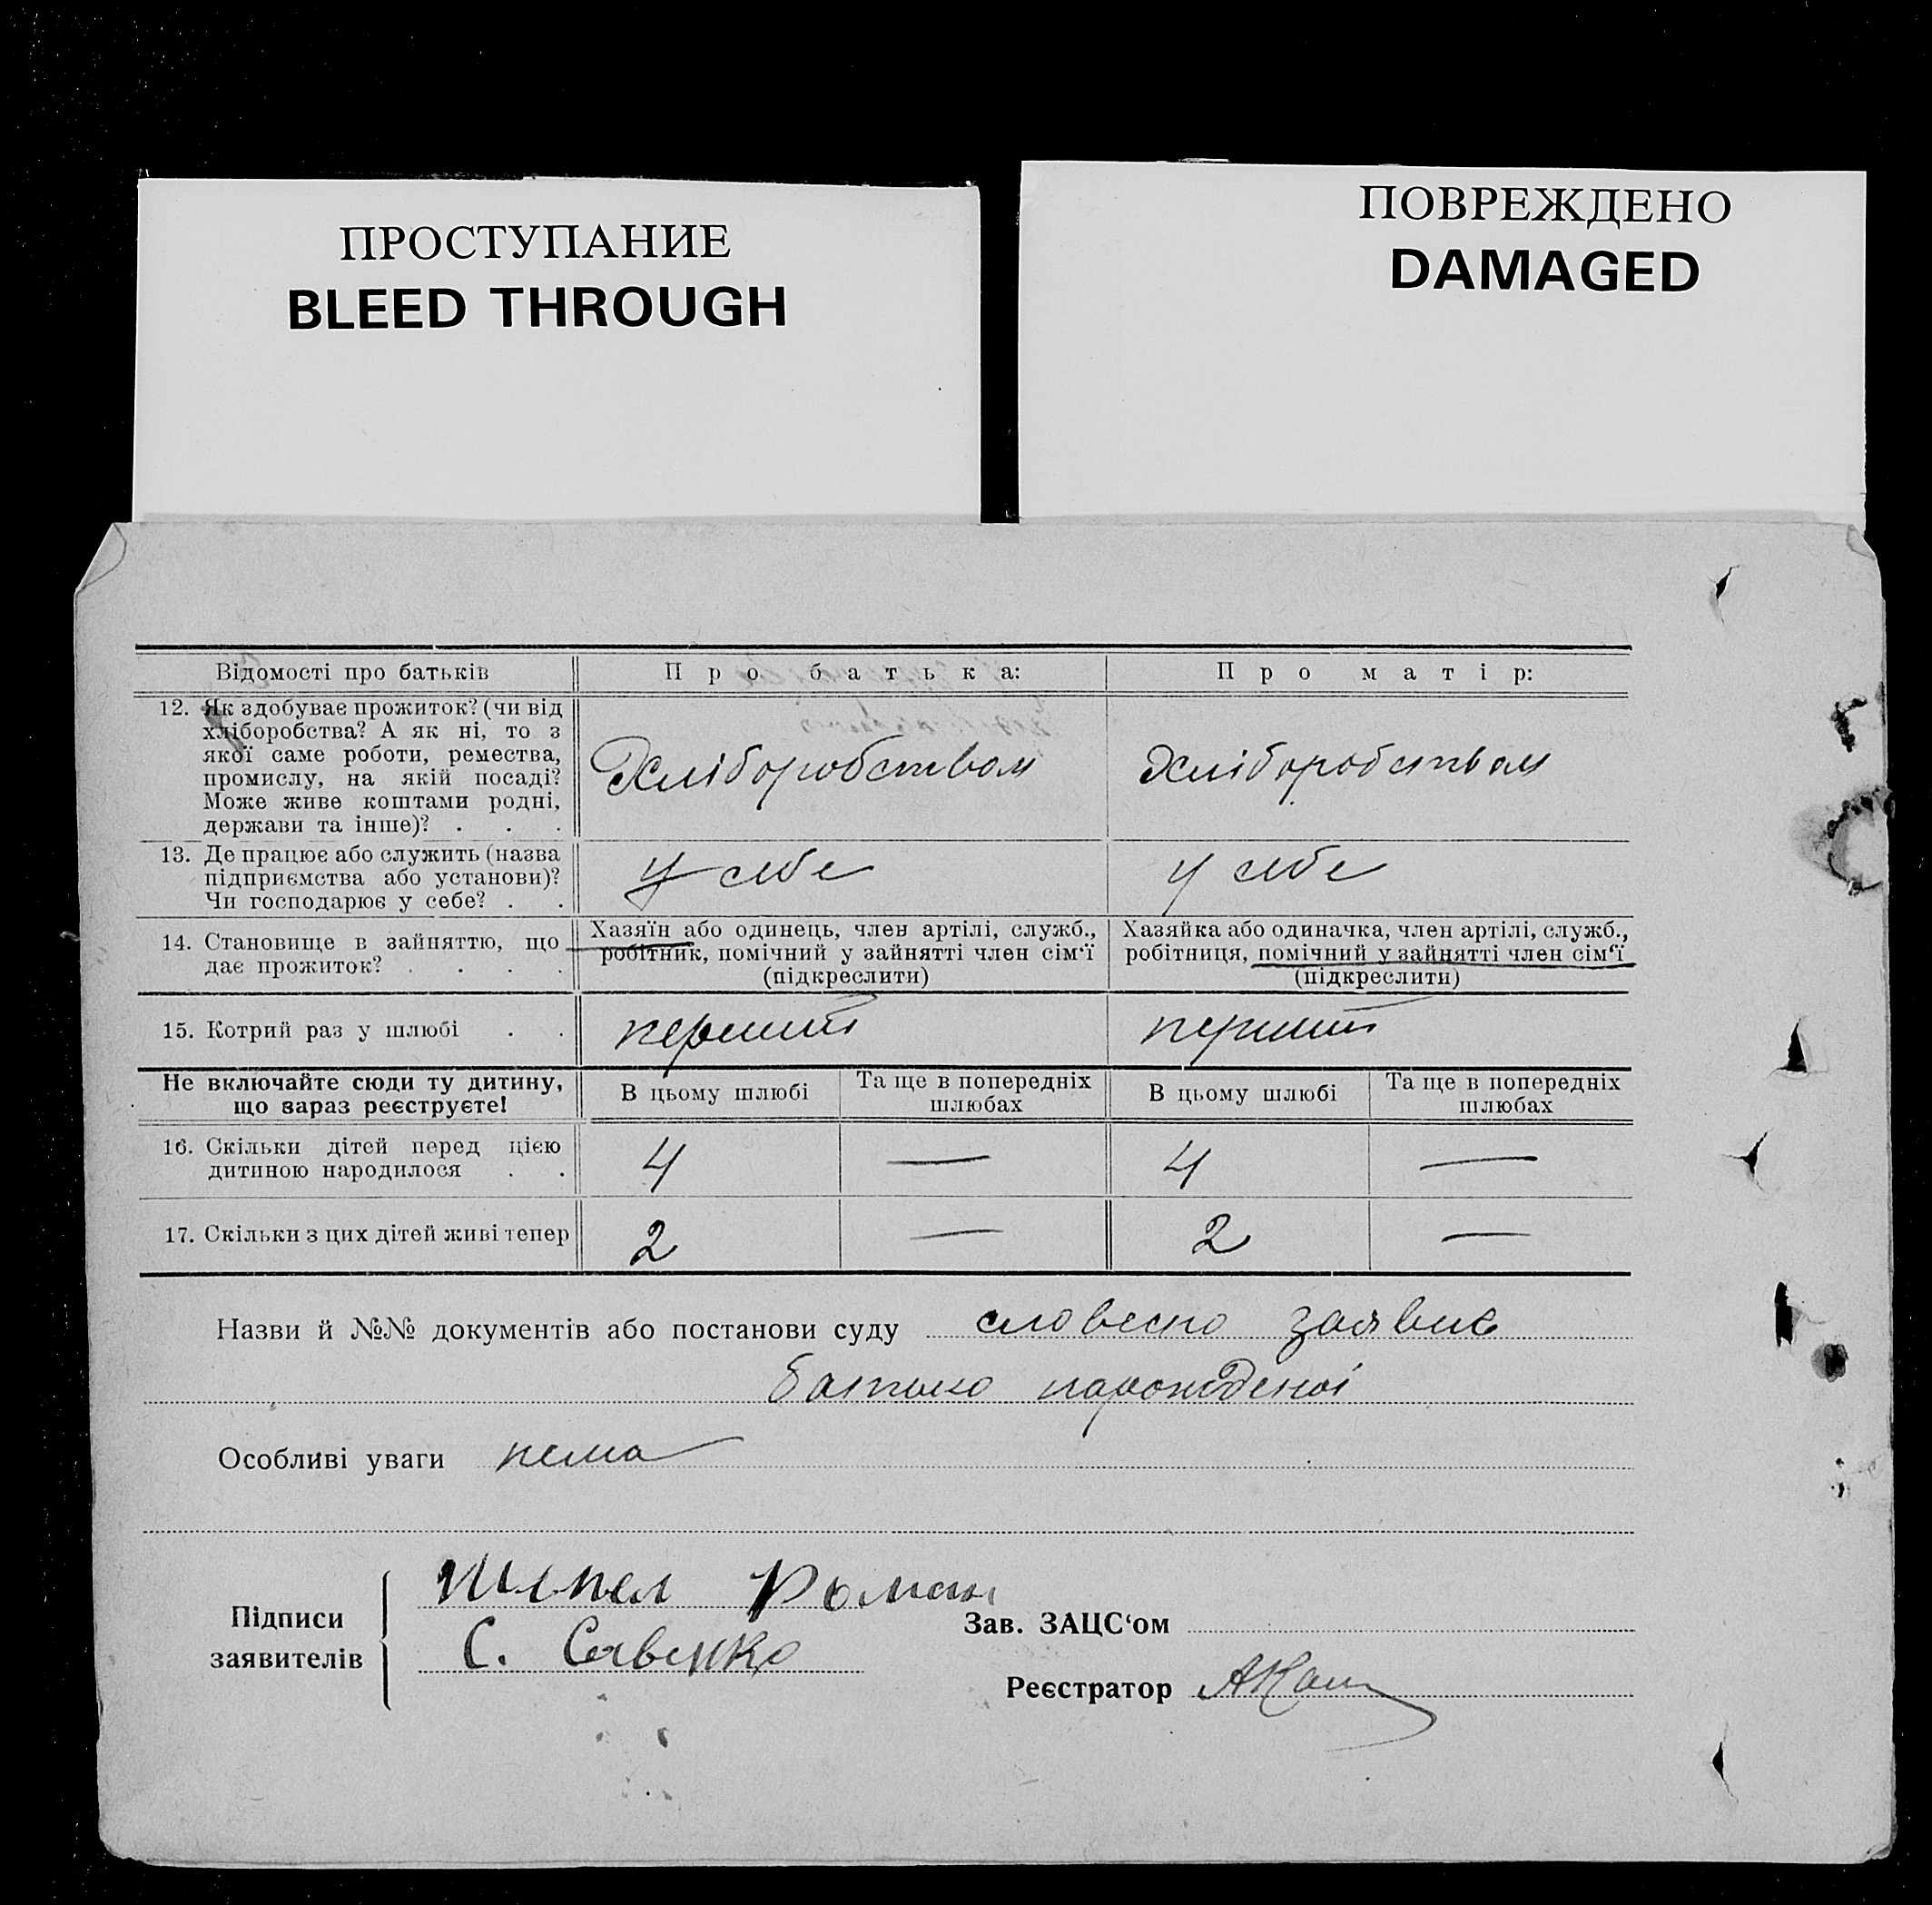 ПРОСТУПАНИЕ
BLEED THROUGH
ПОВРЕЖДЕНО
DAMAGED
Відомості про батьків
Про батька:
Про матір:
12. Як здобуває прожиток? (чи від
хліборобства? А як ні, то з
якої саме роботи, ремества,
промислу, на якій посаді?
Може живе коштами родні,
держави та інше)? . . .
Хліборобством
Хліборобством
13. Де працює або служить (назва
підприємства або установи)?
Чи господарює у себе? . .
У себе
у себе
14. Становище в зайняттю, що
дає прожиток? . . . .
Хазяїн або одинець, член артілі, служб.,
робітник, помічний у зайнятті член сім‘ї
(підкреслити)
Хазяйка або одиначка, член артілі, служб.,
робітниця, помічний у зайнятті член сім‘ї
(підкреслити)
15. Котрий раз у шлюбі . .
перший
перший
Не включайте сюди ту дитину,
що зараз реєструєте!
В цьому шлюбі
Та ще в попередніх
шлюбах
В цьому шлюбі
Та ще в попередніх
шлюбах
16. Скільки дітей перед цією
дитиною народилося . .
4
—
4
—
17. Скільки з цих дітей живі тепер
2
—
2
—
Назви й №№ документів або постанови суду словесно заявив
батько нарожденої
Особливі уваги нема
Підписи
заявителів
Роман
С. Савенко
Зав. ЗАЦС‘ом
Реєстратор